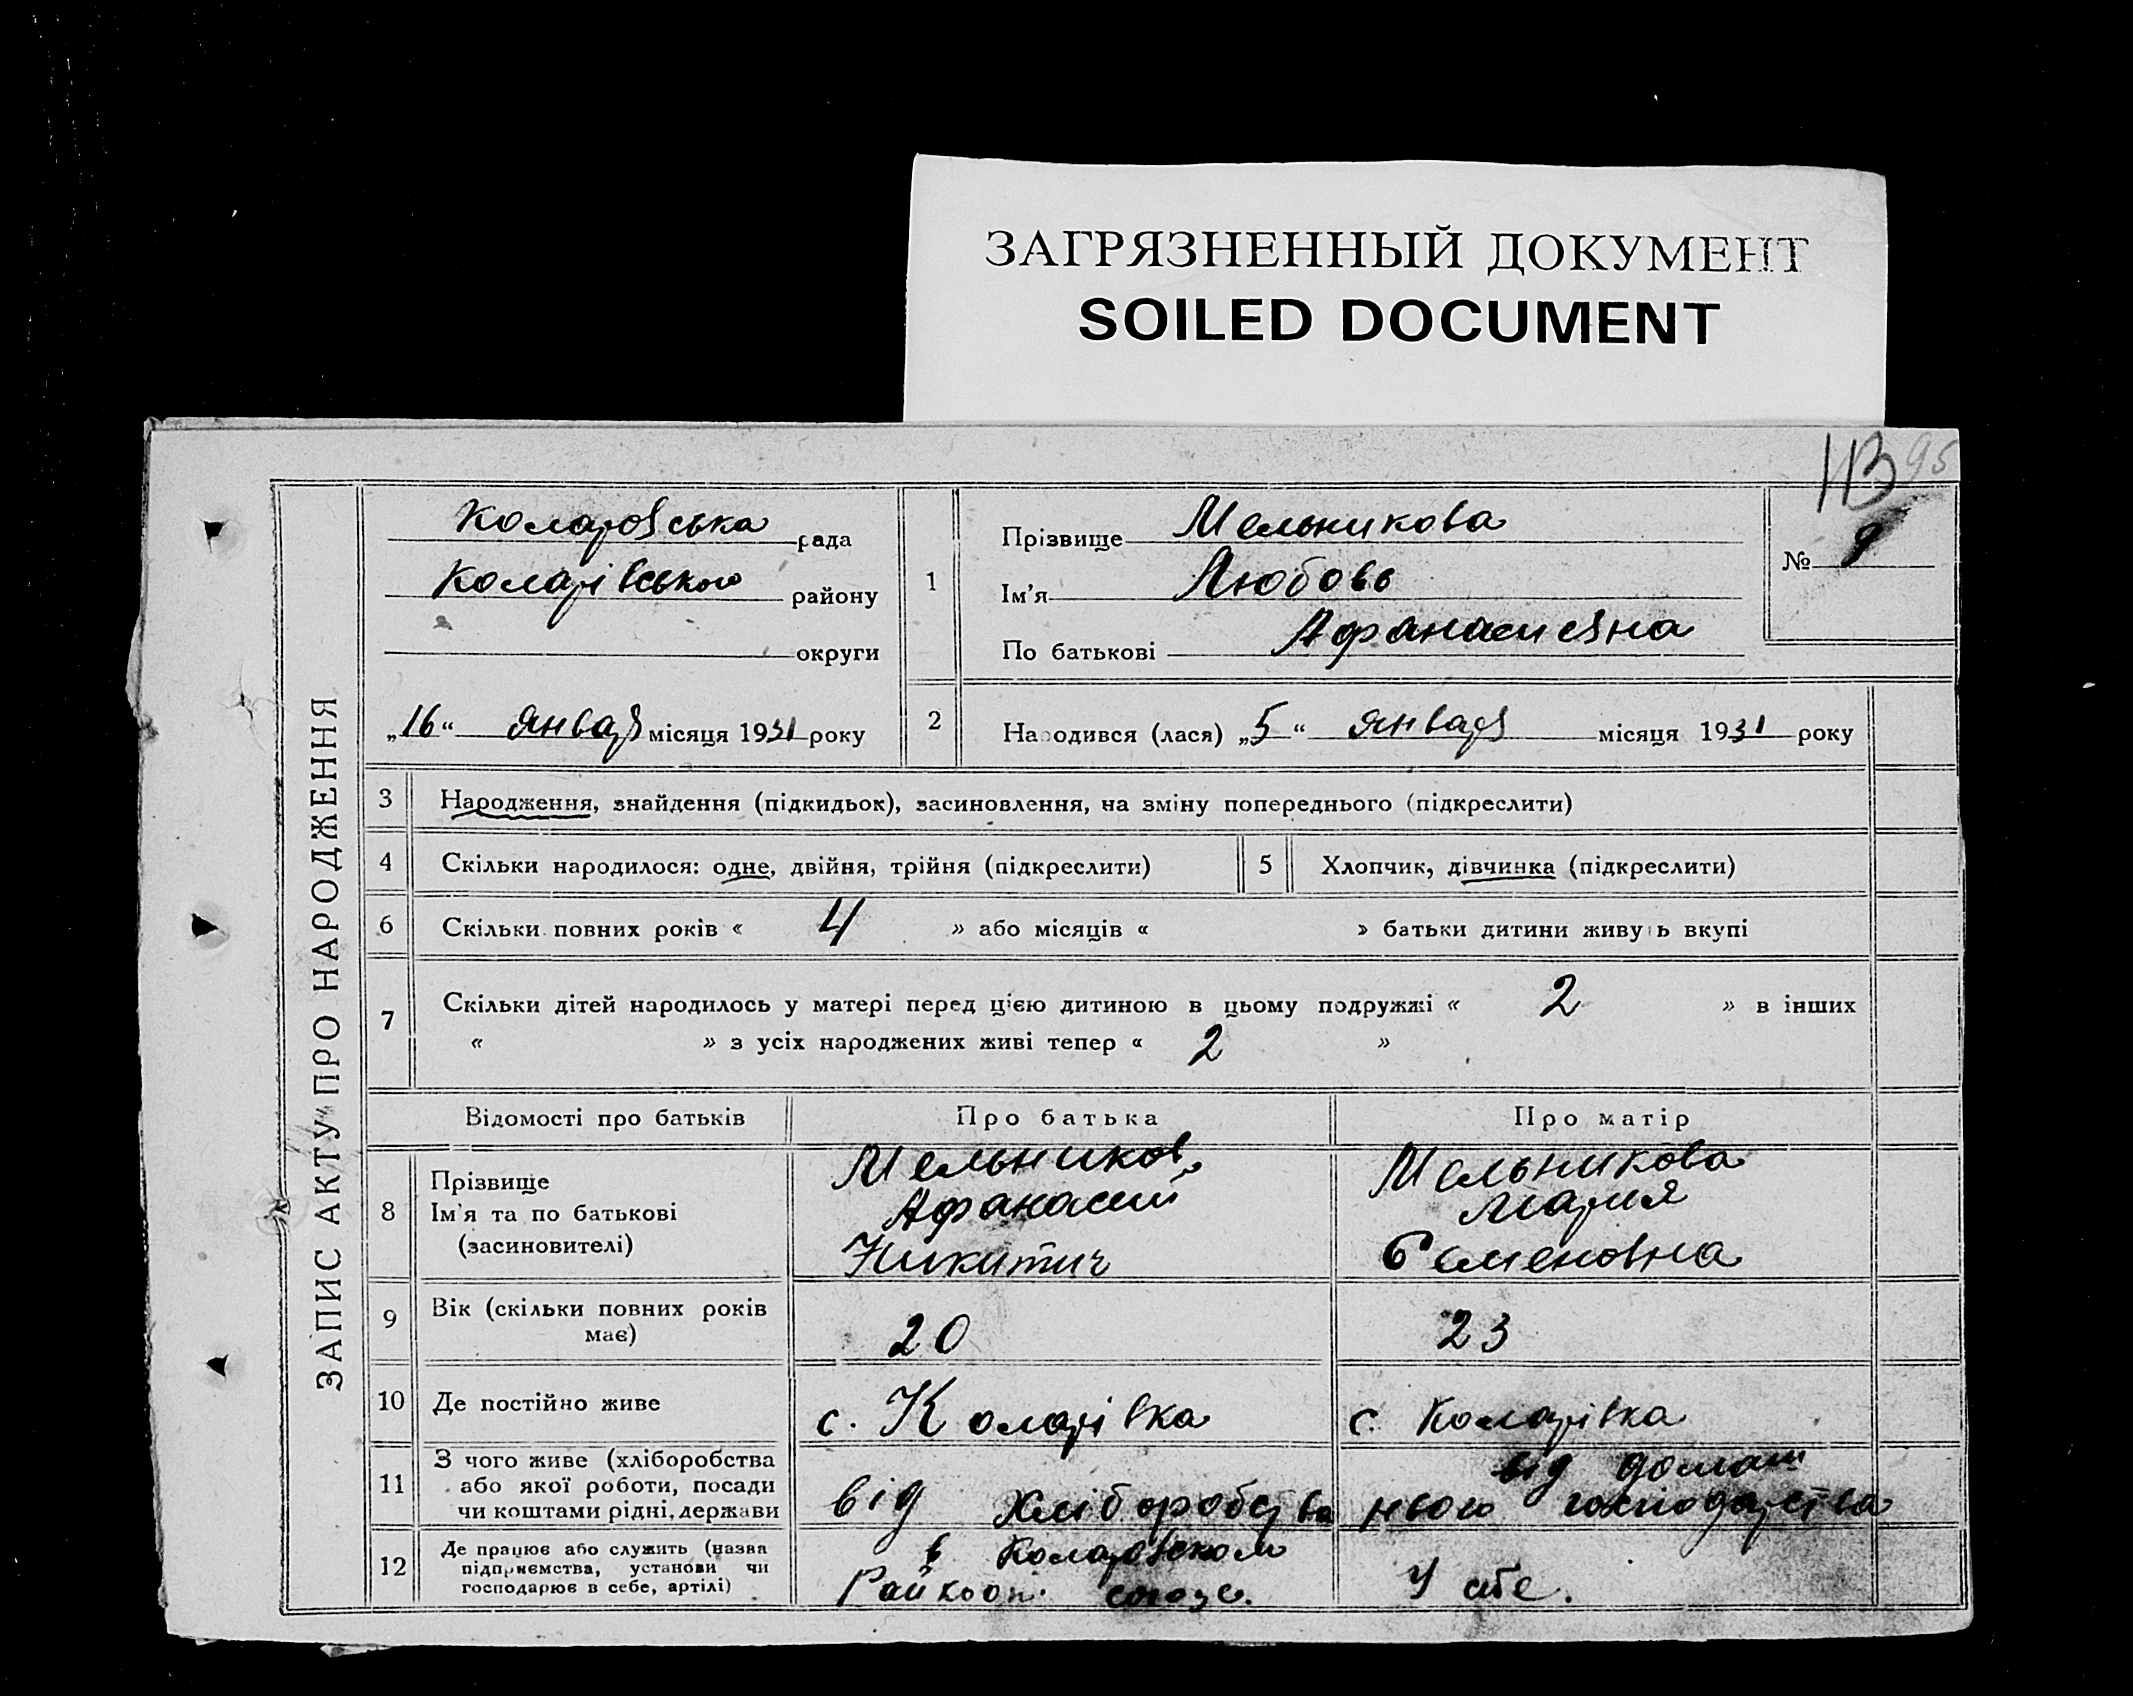 ЗАГРЯЗНЕННЫЙ ДОКУМЕНТ
SOILED DOCUMENT
НВ 95
ЗАПИС АКТУ ПРО НАРОДЖЕННЯ
Коларовська рада
Коларівського району
округи
„16“ января місяця 1931 року
1
Прізвище Мельникова
Ім'я Любовь
По батькові Афанасиевна
№ 9
2 Народився (лася) „5“ января місяця 1931 року
3 Народження, знайдення (підкидьок), засиновлення, на зміну попереднього (підкреслити)
4 Скільки народилося: одне, двійня, трійня (підкреслити) 5 Хлопчик, дівчинка (підкреслити)
6 Скільки повних років « 4 » або місяців « » батьки дитини живуть вкупі
7 Скільки дітей народилось у матері перед цією дитиною в цьому подружжі « 2 » в інших
« » з усіх народжених живі тепер « 2 »
Відомості про батьків Про батька Про матір
8
Прізвище
Ім'я та по батькові
(засиновителі)
Мельников
Афанасий
Никитич
Мельникова
Мария
Семеновна
9
Вік (скільки повних років
має)
20
23
10 Де постійно живе с. Коларівка с. Коларівка
11
З чого живе (хліборобства
або якої роботи, посади
чи коштами рідні, держави
від Хліборобства
від домаш
нього господарства
12
Де працює або служить (назва
підприємства, установи чи
господарює в себе, артілі)
в Коларовском
Райкооп. союзе.
У себе.